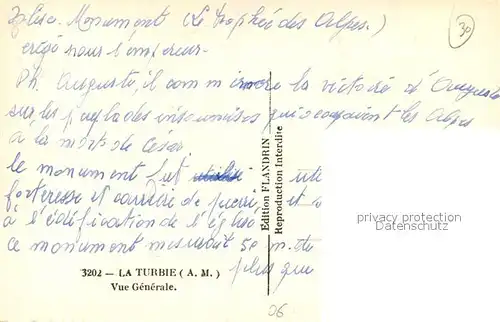 Monument (Le trophée des Alpes.)
30
érigé sous l'empereur
Auguste, il commémore la victoire d'Auguste
sur les peuplades insoumises qui occupaient les Alpes
à la mort de César.
le monument fut
forteresse et carrière de pierre, et
à l'édification de l'église,
ce monument mesurait 50 m. de
plus que
Edition FLANDRIN
Reproduction Interdite
privacy protection
Datenschutz
3202 — LA TURBIE (A. M.)
Vue Générale.
06